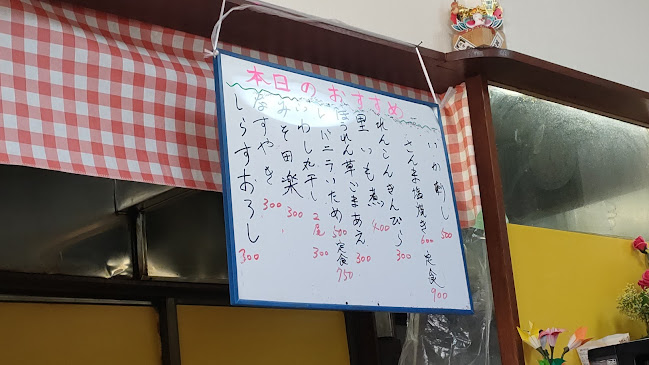 本日のおすすめ
いか刺し 500
さんま塩焼き 600 定食 900
れんこんきんぴら 300
里いも煮 400
ほうれん草ごまあえ 300
レバニラいため 500 定食 750
いわし丸干し 2尾 300
みそ田楽 300
なすやき 300
しらすおろし 300